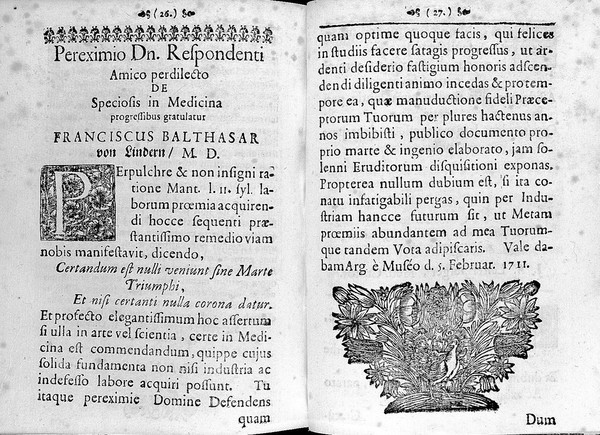 (26.)
Pereximio Dn. Respondenti
Amico perdilecto
DE
Speciosis in Medicina
progressibus gratulatur
FRANCISCUS BALTHASAR
von Lindern / M. D.
PErpulchre & non insigni ra-
tione Mant. l. 11. syl. la-
borum præmia acquiren-
di hocce sequenti præ-
stantissimo remedio viam
nobis manifestavit, dicendo,
Certandum est nulli veniunt sine Marte
Triumphi,
Et nisi certanti nulla corona datur.
Et profecto elegantissimum hoc assertum
si ulla in arte vel scientia, certe in Medi-
cina est commendandum, quippe cujus
solida fundamenta non nisi industria ac
indefesso labore acquiri possunt. Tu
itaque pereximie Domine Defendens
quam
(27.)
quam optime quoque facis, qui felices
in studiis facere satagis progressus, ut ar-
denti desiderio fastigium honoris adscen-
dendi diligenti animo incedas & protem-
pore ea, quæ manuductione fideli Præce-
ptorum Tuorum per plures hactenus an-
nos imbibisti, publico documento pro-
prio marte & ingenio elaborato, jam so-
lenni Eruditorum disquisitioni exponas.
Propterea nullum dubium est, si ita co-
natu infatigabili pergas, quin per Indu-
striam hancce futurum sit, ut Metam
præmiis abundantem ad mea Tuorum-
que tandem Vota adipiscaris. Vale da-
bam Arg è Muséo d. 5. Februar. 1711.
Dum